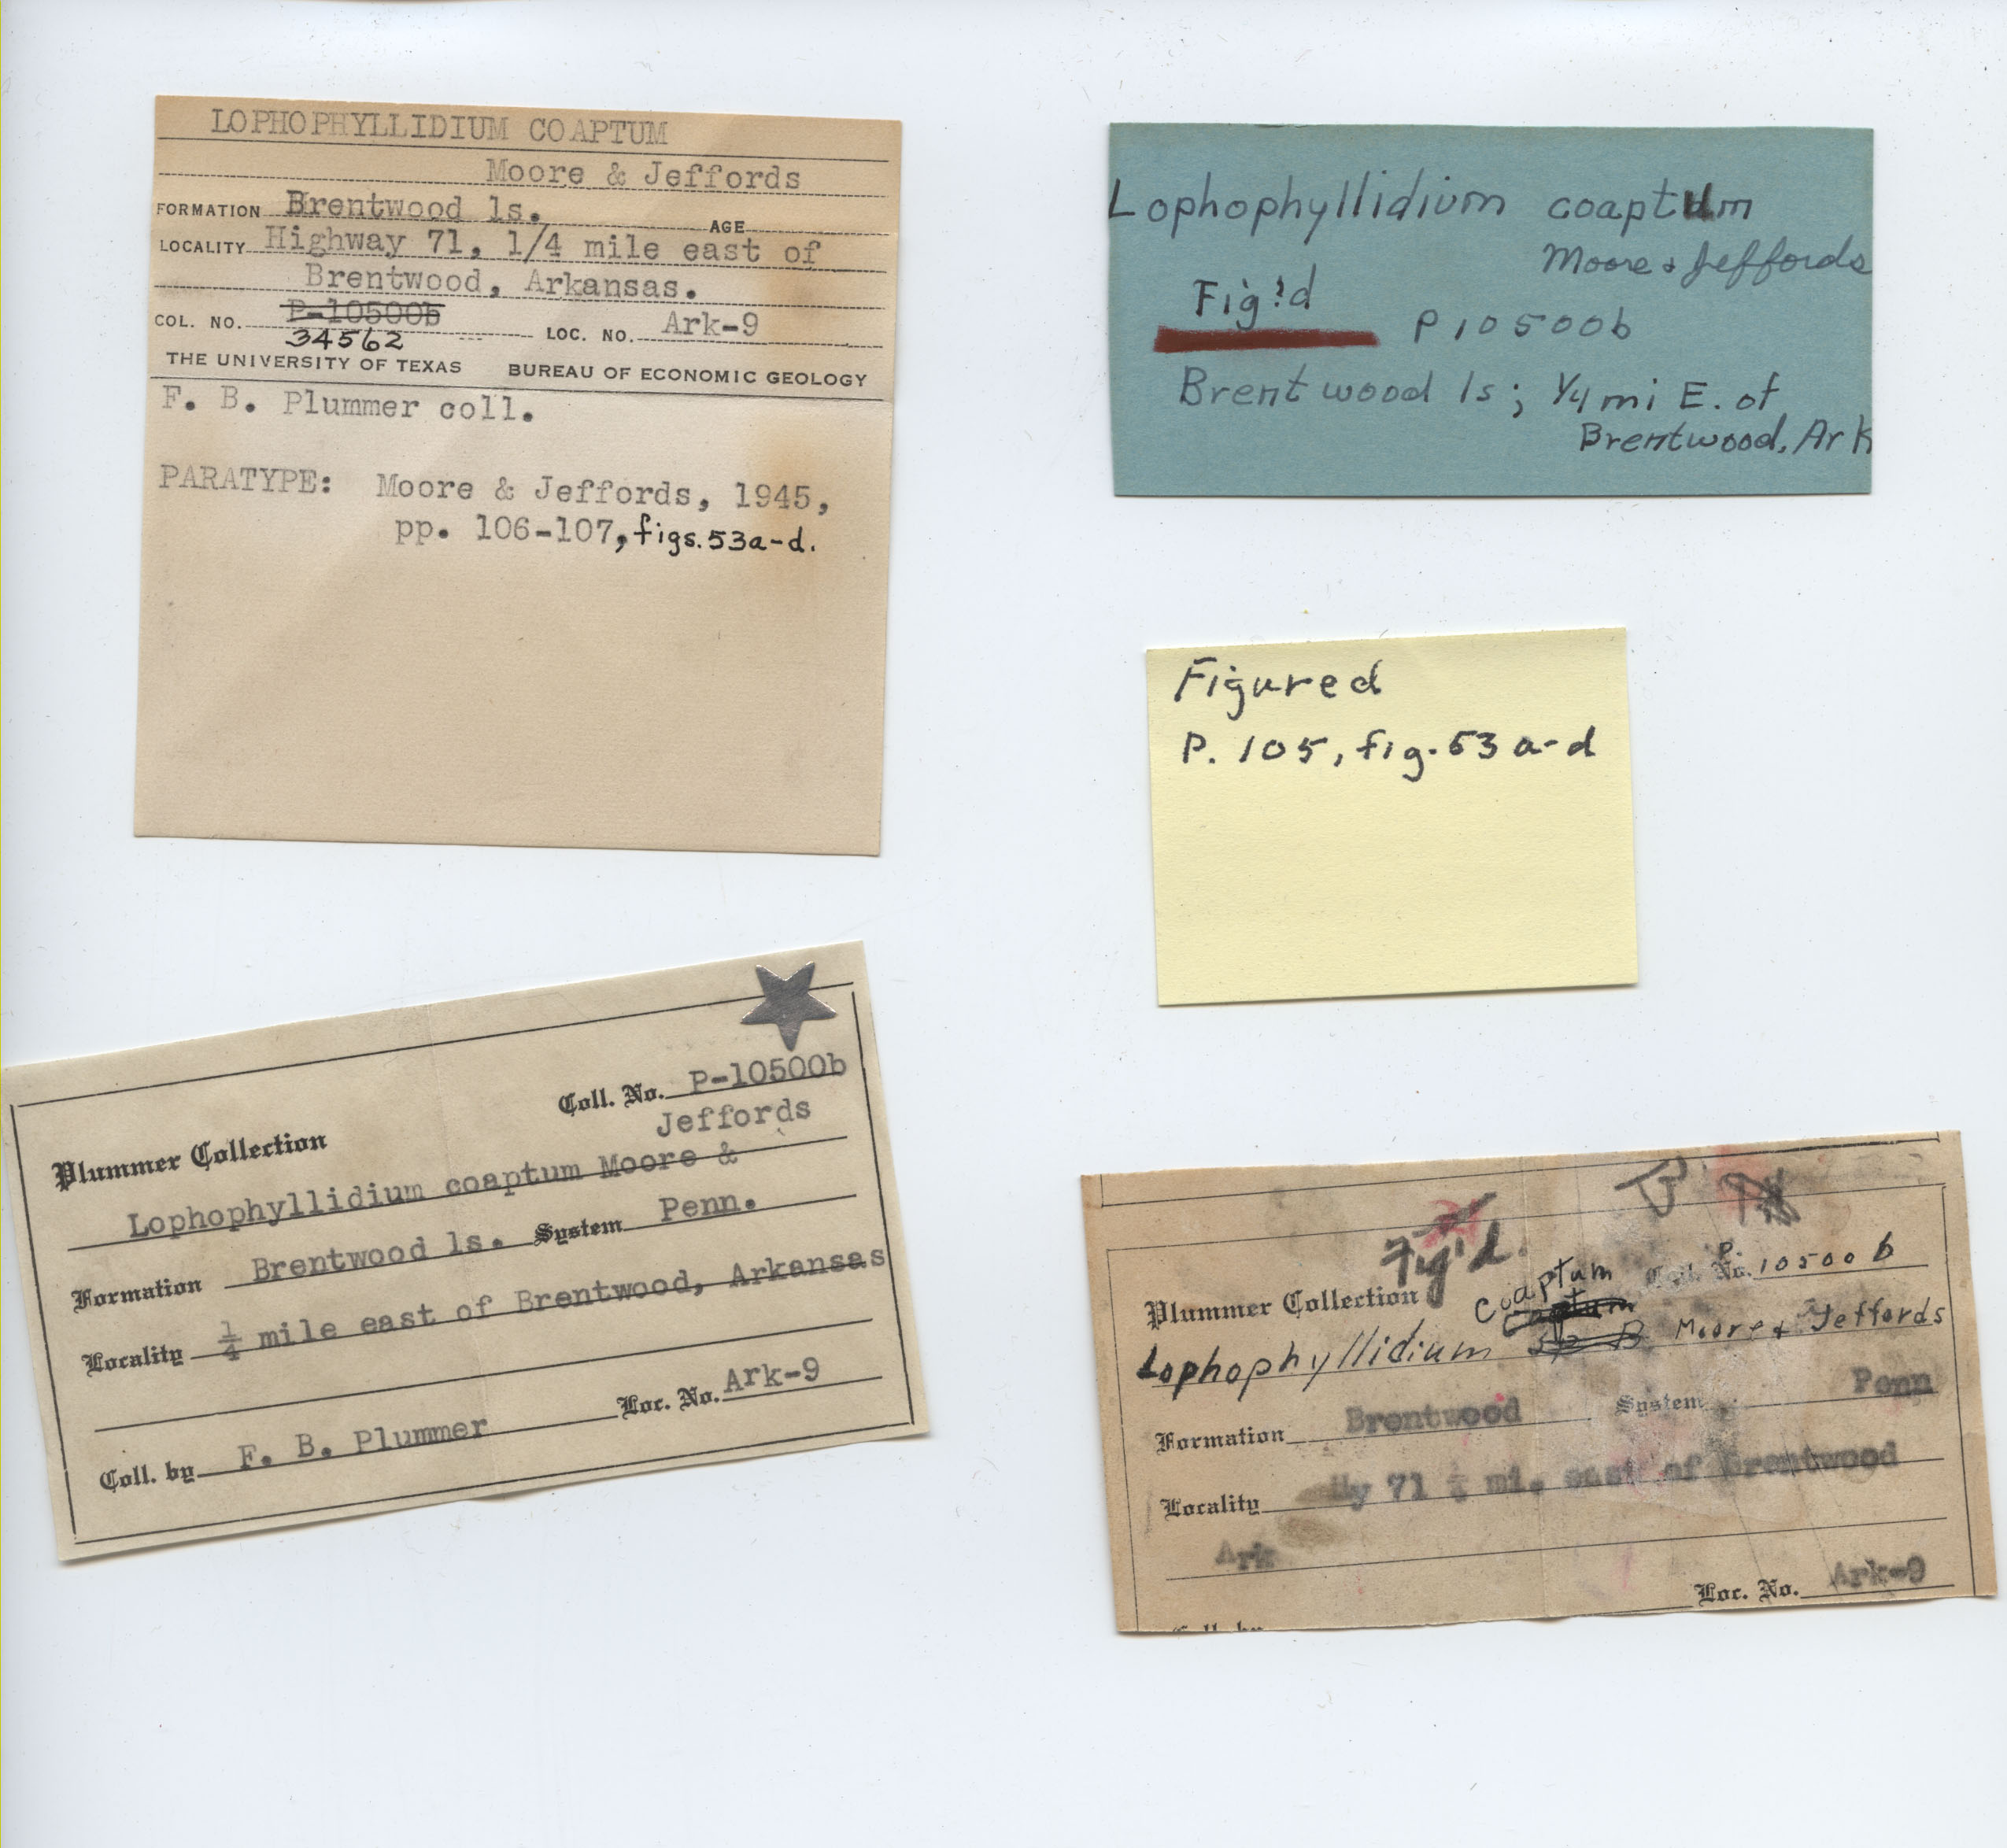 LOPHOPHYLLIDIUM COAPTUM
Moore & Jeffords
FORMATION Brentwood ls. AGE
LOCALITY Highway 71, 1/4 mile east of
Brentwood, Arkansas.
COL. NO. P-10500b LOC. NO. Ark-9
34562
THE UNIVERSITY OF TEXAS BUREAU OF ECONOMIC GEOLOGY
F. B. Plummer coll.
PARATYPE: Moore & Jeffords, 1945,
pp. 106-107, figs. 53a-d.
Lophophyllidium coaptum
Moore & Jeffords
Fig'd
P10500b
Brentwood ls; 1/4 mi E. of
Brentwood, Ark
Figured
P. 105, fig. 53 a-d
Coll. No. P-10500b
Plummer Collection
Jeffords
Lophophyllidium coaptum Moore &
Formation Brentwood ls. System Penn.
Locality 1/4 mile east of Brentwood, Arkansas
Coll. by F. B. Plummer Loc. No. Ark-9
B
Fig'd.
Plummer Collection Coll. No. P. 10500 b
coaptum
Lophophyllidium sp B Moore & Jeffords
Formation Brentwood System Penn
Locality Hy 71 1/4 mi. east of Brentwood
Ark
Loc. No. Ark-9
Coll. by